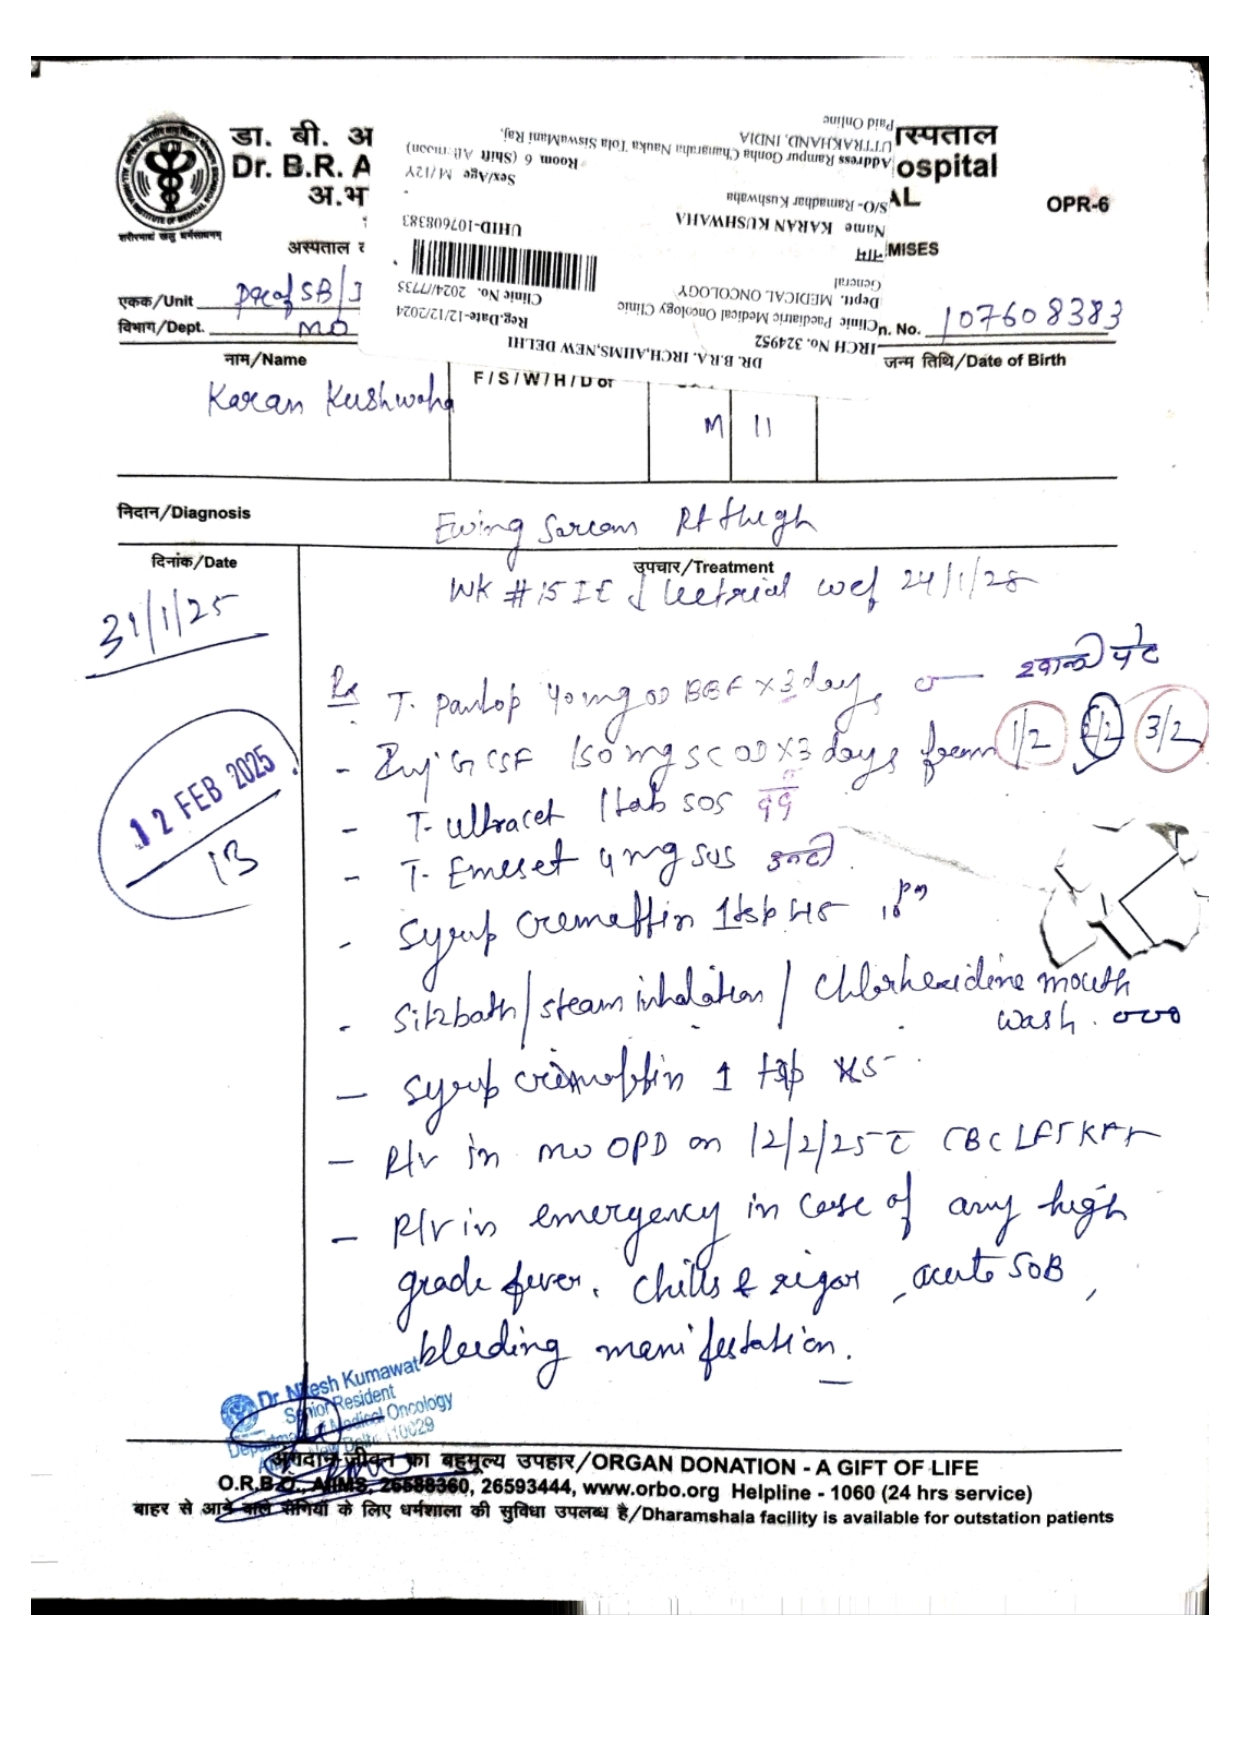 डा. बी. अ
Dr. B.R. A
अ.भ
स्पताल
ospital
AL
OPR-6
अस्पताल
MISES
DR. B.R.A. IRCH,AIIMS,NEW DELHI
IRCH No. 324952
Reg.Date-12/12/2024
Clinic Paediatric Medical Oncology Clinic
Clinic No. 2024/7735
Dept. MEDICAL ONCOLOGY
General
नाम
Name KARAN KUSHWAHA
UHID-107608383
S/O- Ramadhar Kushwaha
Sex/Age M/12Y
Room 6 (Shift
Address Rampur Gonha Chanaraha Nauka Tola SiswaMani Raj,
UTTRAKHAND, INDIA
Paid Online
एकक/Unit Prof SB/
विभाग/Dept. MO
n. No. 107608383
नाम/Name
F/S/W/H/D of
जन्म तिथि/Date of Birth
Karan Kushwaha M 11
निदान/Diagnosis
Ewing Sarcoma Rt thigh
दिनांक/Date
उपचार/Treatment
WK # 15 IE wef 24/1/25
31/1/25
Rx T. Pantop 40 mg OD BBF x 3 days खाली पेट
- Inj G CSF 150 mg SC OD x 3 days from 1/2 2/2 3/2
12 FEB 2025
13
- T. Ultracet 1 tab SOS दर्द
- T. Emeset 4 mg SOS उल्टी
- Syrup Cremaffin 1 tsp HS 10 pm
- Sitzbath/steam inhalation/Chlorhexidine mouth
wash.
- Syrup cremaffin 1 tsp HS
- R/v in MO OPD on 12/2/25 c CBC LFT KFT
- R/v in emergency in case of any high
grade fever, chills & rigor, acute SOB,
bleeding manifestation.
Dr Nitesh Kumawat
Senior Resident
Department of Medical Oncology
110029
अंगदान-जीवन का बहुमूल्य उपहार/ORGAN DONATION - A GIFT OF LIFE
O.R.B.O., AIIMS, 26588360, 26593444, www.orbo.org Helpline - 1060 (24 hrs service)
बाहर से आने वाले रोगियों के लिए धर्मशाला की सुविधा उपलब्ध है/Dharamshala facility is available for outstation patients